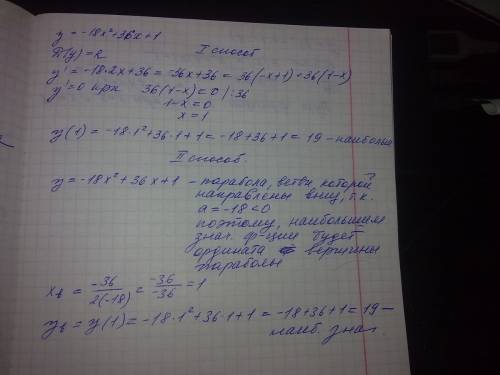 y = -18x²+36x+1
I способ
D(y) = R
y' = -18·2x+36 = -36x+36 = 36(-x+1) = 36(1-x)
y' = 0 при 36(1-x) = 0 /:36
1-x = 0
x = 1
y(1) = -18·1²+36·1+1 = -18+36+1 = 19 - наибольш
II способ.
y = -18x²+36x+1 - парабола, ветви, которой
направлены вниз, т.к.
a = -18 < 0
поэтому, наибольшим
знач. ф-ции будет
ордината вершины
параболы
xв = -36/2(-18) = -36/-36 = 1
yв = y(1) = -18·1²+36·1+1 = -18+36+1 = 19 -
наиб. знач.